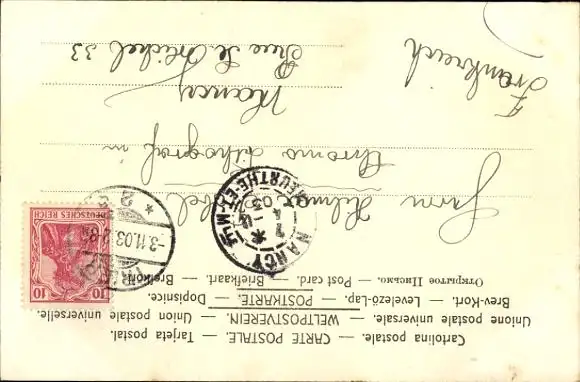 Cartolina postale. — CARTE POSTALE. — Tarjeta postal.
Unione postale universale. WELTPOSTVEREIN. — Union postale universelle.
Brev-Kort. — Levelező-Lap. — POSTKARTE. — Dopisnice.
Открытое Письмо. — Post card. — Briefkaart. — Brefkort.
DEUTSCHES REICH
10 10
-3.11.03.
* 2
NANCY
MEURTHE-ET-M
03
Herrn Hilmar
Chromo Lithograf in
Nancy
Rue de 33
Frankreich